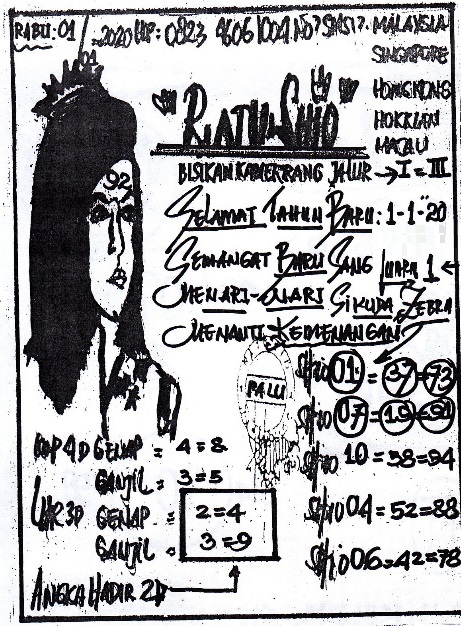 RABU: 01 -2020 HP: 0823 4606 1004 NO? SMS!?
MALAYSIA
SINGAPORE
HONGKONG
HOKKIAN
MACAU
01
92
RATU SHIO
BISIKAN KAMERRANG JALUR → I = III
SELAMAT TAHUN BARU: 1-1-"20
SEMANGAT BARU SANG JUARA 1 ←
MENARI-NARI SIKUDA ZEBRA
MENANTI KEMENANGAN
PALU
SHIO 01 = 37 = 73
SHIO 07 = 19 = 91
SHIO 10 = 58 = 94
SHIO 04 = 52 = 88
SHIO 06 = 42 = 78
KOP 4D GENAP = 4 = 8
GANJIL = 3 = 5
3D GENAP = 2 = 4
GANJIL = 3 = 9
ANGKA HADIR 2D